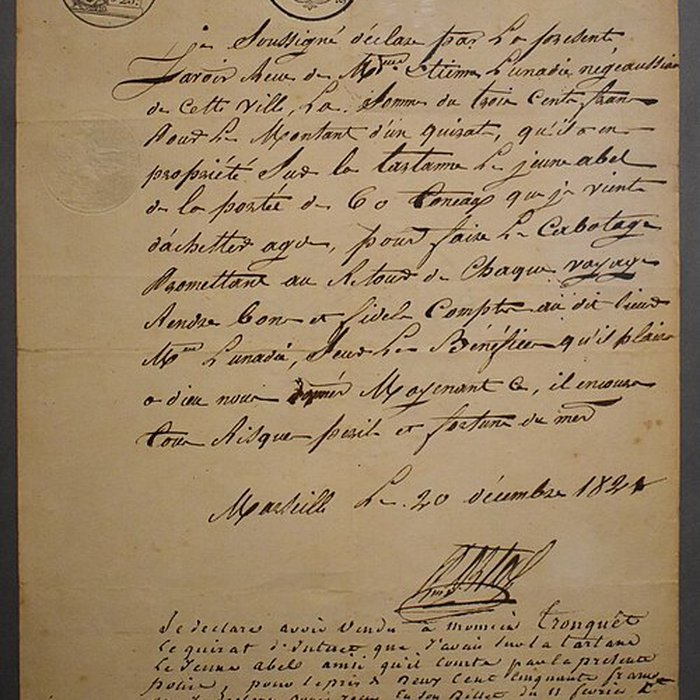 je Soussigné déclare par La présente
avoir Reçu de Mr Etienne Lunadié, négociant
de Cette Ville, La Somme du trois Cents fran
Pour Le Montant d'un quirat, qu'il a en
propriété Sur la tartanne Le jeune abel
de la portée de 60 toneax que je viens
d'achetter age, pour faire Le Cabotage
Promettant au Retour de Chaque voyage
Rendre bon et fidel Compte au dit Sieur
Mr Lunadié, Sur Les Bénéfices qu'il plaira
a dieu nous donner Moyenant Ce, il encoure
tous Risque peril et fortune de mer
Marseille Le 20 décembre 182
Je declare avoir vendu à monsieur Tronquet
Le quirat d'interet que J'avais sur la tartane
Le Jeune abel ainsi qu'il conste par la presente
police, pour le prix de Deux Cent Cinquante francs
en Son Billet du 11 fevrier